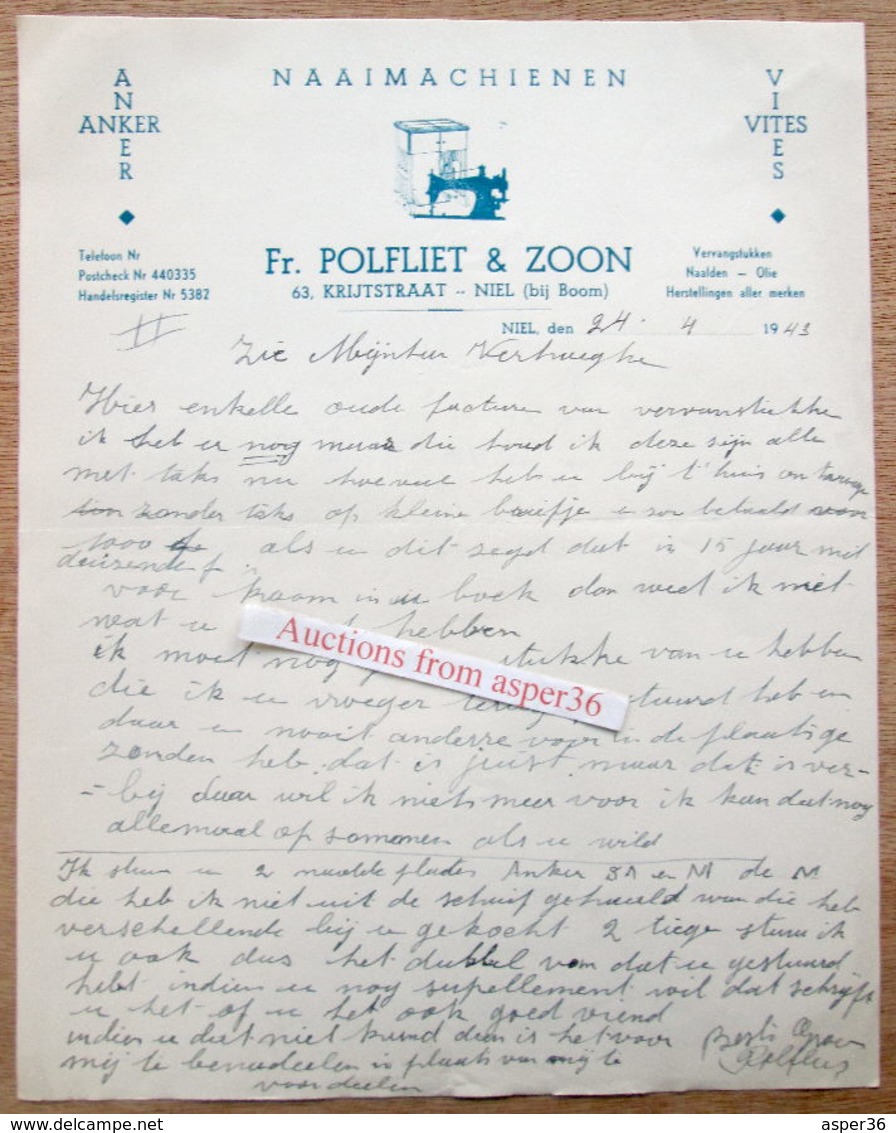 ANKER
ANKER
NAAIMACHIENEN
VITES
VITES
Telefoon Nr
Postcheck Nr 440335
Handelsregister Nr 5382
Fr. POLFLIET & ZOON
63, KRIJTSTRAAT -- NIEL (bij Boom)
Vervangstukken
Naalden — Olie
Herstellingen aller merken
NIEL, den 24. 4 1943
II
Zie Mijnheer Verhaeghe
Hier enkelle oude facture van
ik heb er nog maar die houd ik deze zijn alle
met taks nu hoeveel heb u bij t'huis
zonder taks op kleine briefje u son betaald
1000 als u dit zegd dat in 15 jaar niet
duizende fr.
voor kwam in u boek dan weet ik niet
wat u hebben
ik moet nog stukke van u hebben
die ik u vroeger terug gestuurd heb en
daar u nooit anderre voor in de plaats ge
zonden heb. dat is juist. maar dat is ver-
- bij daar wil ik niets meer voor ik kan dat nog
allemaal op sommen als u wild
Ik stuur u 2 naalde plades Anker BA en M de M
die heb ik niet uit de schuif gehaald van die heb
verschellende bij u gekocht 2 tiege stuur ik
u ook dus het dubbel van dat u gestuurd
hebt indien u nog supellement wil dat schrijft
u het of u het ook goed viend
indien u dat niet kund dan is het voor
mij te benadeelen in plaats van mij te
voordeelen
Beste Groe
Polfliet
Auctions from asper36
www.delcampe.net
asper36